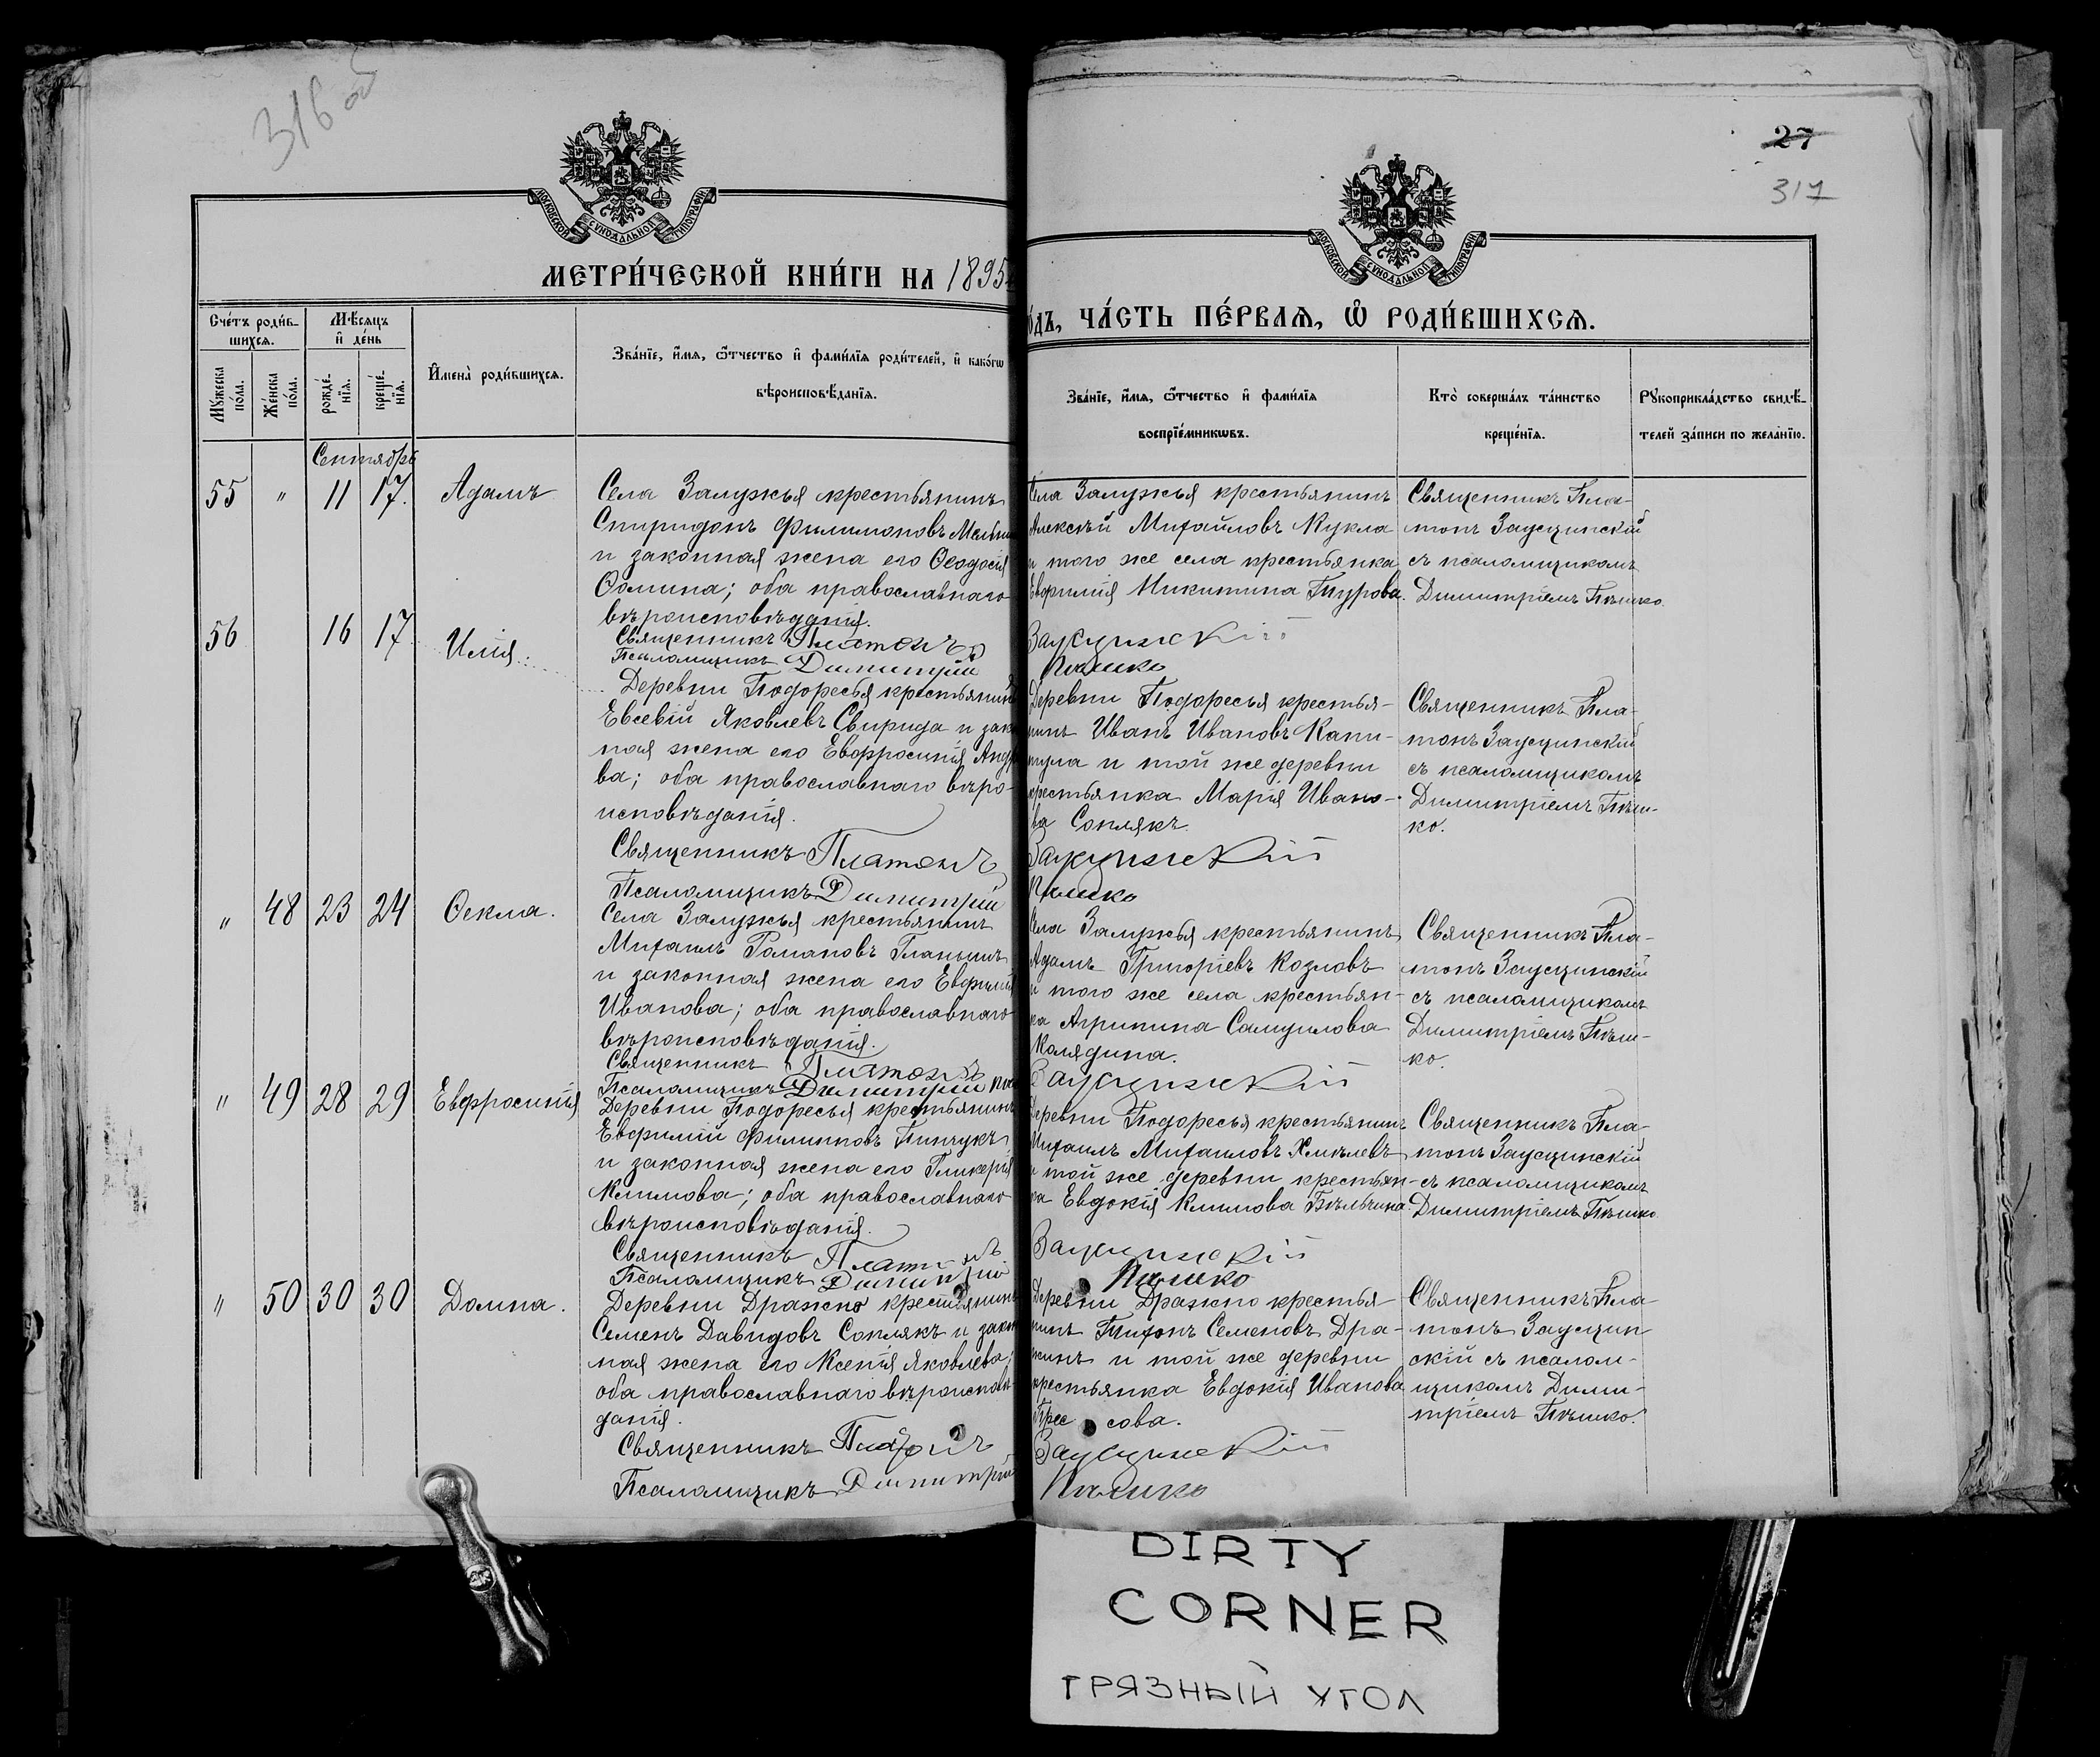 316 об
27
317
МОСКОВСКОЙ СѴНОДАЛЬНОЙ ТИПОГРАФІИ
МОСКОВСКОЙ СѴНОДАЛЬНОЙ ТИПОГРАФІИ
МЕТРИ́ЧЕСКОЙ КНИ́ГИ НА 1895
ЧА́СТЬ ПЕ́РВАЯ, Ѡ РОДИ́ВШИХСЯ.
Сче́тъ роди́в-
шихся.
Мѣ́сяцъ
и де́нь
Му́жеска по́ла.
Же́нска по́ла.
рожде́-
нїя.
креще́-
нїя.
И҆мена̀ роди́вшихся.
Зва́нїе, и҆́мя, ѻ҆́тчество и҆ фами́лїя роди́телей, и҆ како́гѡ
вѣроисповѣ́данїя.
Зва́нїе, и҆́мя, ѻ҆́тчество и҆ фами́лїя
воспрїе́мникѡвъ.
Кто̀ соверша́лъ та́инство
креще́нїя.
Рꙋкоприкла́дство свидѣ́-
телей за́писи по жела́нїю.
Сентябрь
55 " 11 17. Адамъ
Села Залужья крестьянинъ
Спиридонъ Филимоновъ
и законная жена его Ѳеодосія
Ѳомина; оба православнаго
вѣроисповѣданія.
Священникъ Платонъ
Псаломщикъ Димитрій
Села Залужья крестьянинъ
Алексѣй Михайловъ Кукла
и того же села крестьянка
Евфимія Никитина Гурова.
Заусцинскій
Пѣшко
Священникъ Пла-
тонъ Заусцинскій
съ псаломщикомъ
Димитріемъ Пѣшко.
56 16 17 Илія
Деревни Подоресья крестьянинъ
Евсевій Яковлевъ Свирида и зако
ная жена его Евфросинія Андре
ва; оба православнаго вѣро-
исповѣданія.
Священникъ Платонъ
Псаломщикъ Димитрій
Деревни Подоресья крестья-
нинъ Иванъ Ивановъ Капи-
тула и той же деревни
крестьянка Марія Ивано-
ва Соплякъ.
Заусцинскій
Пѣшко
Священникъ Пла-
тонъ Заусцинскій
съ псаломщикомъ
Димитріемъ Пѣш-
ко.
" 48 23 24 Ѳекла.
Села Залужья крестьянинъ
Михаилъ Романовъ
и законная жена его Евфимія
Иванова; оба православнаго
вѣроисповѣданія.
Священникъ Платонъ
Псаломщикъ Димитрій
Села Залужья крестьянинъ
Адамъ Григоріевъ Козловъ
и того же села крестьян-
ка Агрипина Самуилова
Колядина.
Заусцинскій
Священникъ Пла-
тонъ Заусцинскій
съ псаломщикомъ
Димитріемъ Пѣш-
ко.
" 49 28 29 Евфросинія
Деревни Подоресья крестьянинъ
Евфимій Филиповъ Пинчукъ
и законная жена его Гликерія
Климова; оба православнаго
вѣроисповѣданія.
Священникъ Платонъ
Псаломщикъ Димитрій
Деревни Подоресья крестьянинъ
Михаилъ Михаиловъ Хмѣлевъ
и той же деревни крестьян-
ка Евдокія Климова Бѣльчина.
Заусцинскій
Пѣшко
Священникъ Пла-
тонъ Заусцинскій
съ псаломщикомъ
Димитріемъ Пѣшко.
" 50 30 30 Домна.
Деревни Дражно крестьянинъ
Семенъ Давидовъ Соплякъ и закон
ная жена его Ксенія Яковлева;
оба православнаго вѣроисповѣ-
данія.
Священникъ Платонъ
Псаломщикъ Димитрій
Деревни Дражно крестья
нинъ Тихонъ Семеновъ Дра-
жинъ и той же деревни
крестьянка Евдокія Иванова
сова.
Заусцинскій
Пѣшко
Священникъ Пла
тонъ Заусцин
скій съ псалом-
щикомъ Дими-
тріемъ Пѣшко.
DIRTY
CORNER
ГРЯЗНЫЙ УГОЛ